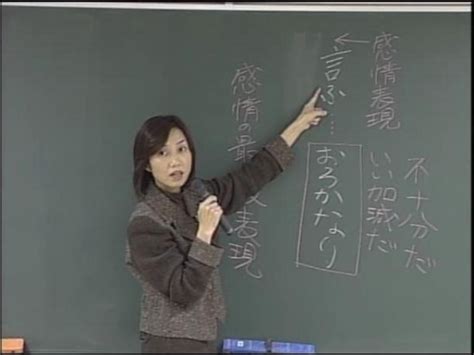 感情表現
不十分だ
いい加減だ
言ふ…おろかなり
感情の最 表現